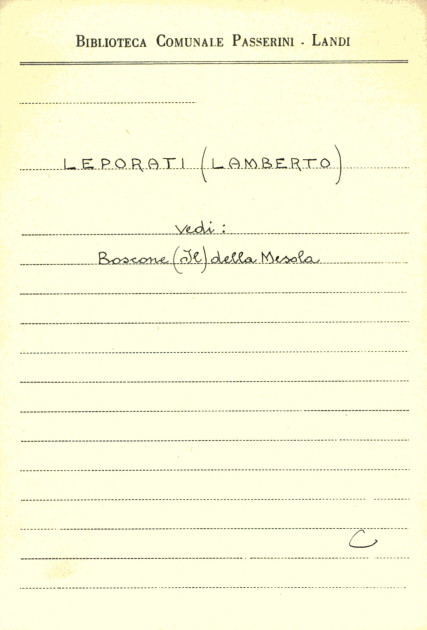 BIBLIOTECA COMUNALE PASSERINI - LANDI
LEPORATI (LAMBERTO)
vedi:
Boscone (Il) della Mesola
C